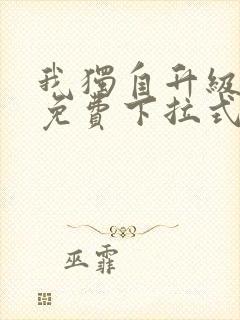 我獨自升級
免費下拉式
巫霏